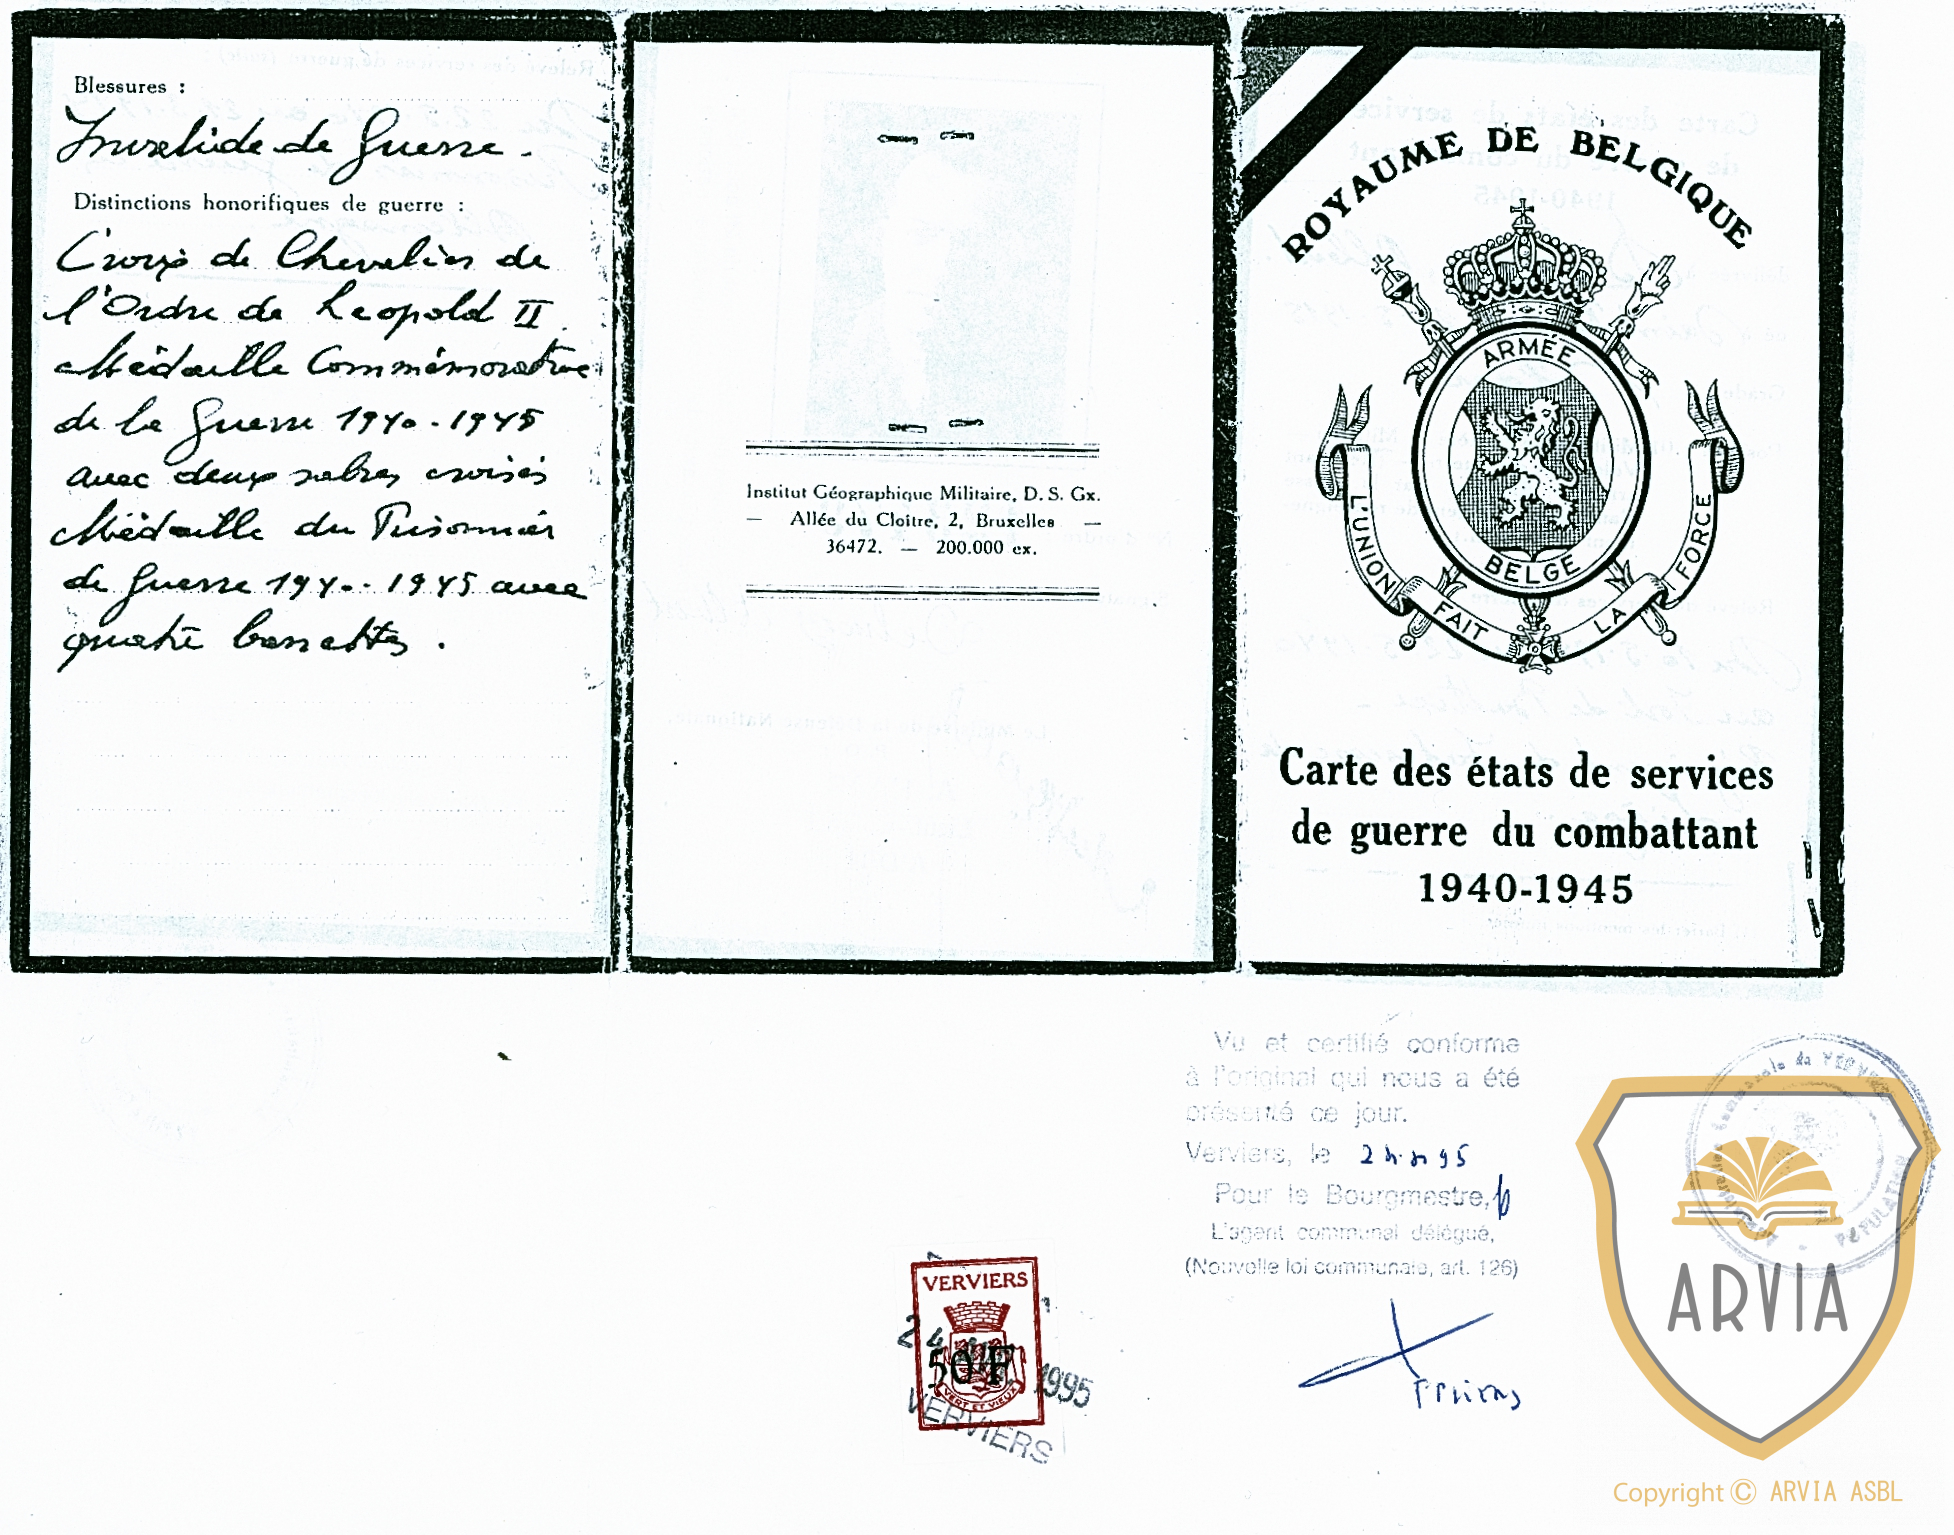 Blessures :
Invalide de Guerre.
Distinctions honorifiques de guerre :
Croix de Chevalier de
l'Ordre de Leopold II
Médaille Commémorative
de la Guerre 1940-1945
avec deux sabres croisés
Médaille du Prisonnier
de Guerre 1940-1945 avec
quatre barrettes.
Institut Géographique Militaire, D. S. Gx.
— Allée du Cloître, 2, Bruxelles —
36472. — 200.000 ex.
ROYAUME DE BELGIQUE
ARMÉE
BELGE
L'UNION FAIT LA FORCE
Carte des états de services
de guerre du combattant
1940-1945
Vu et certifié conforme
à l'original qui nous a été
présenté ce jour.
Verviers, le
Pour le Bourgmestre,
L'agent communal délégué,
(Nouvelle loi communale, art. 126)
VERVIERS
50 F
VERT ET VIEUX
24 1995
VERVIERS
de VERVIERS
POPULATION
ARVIA
Copyright © ARVIA ASBL